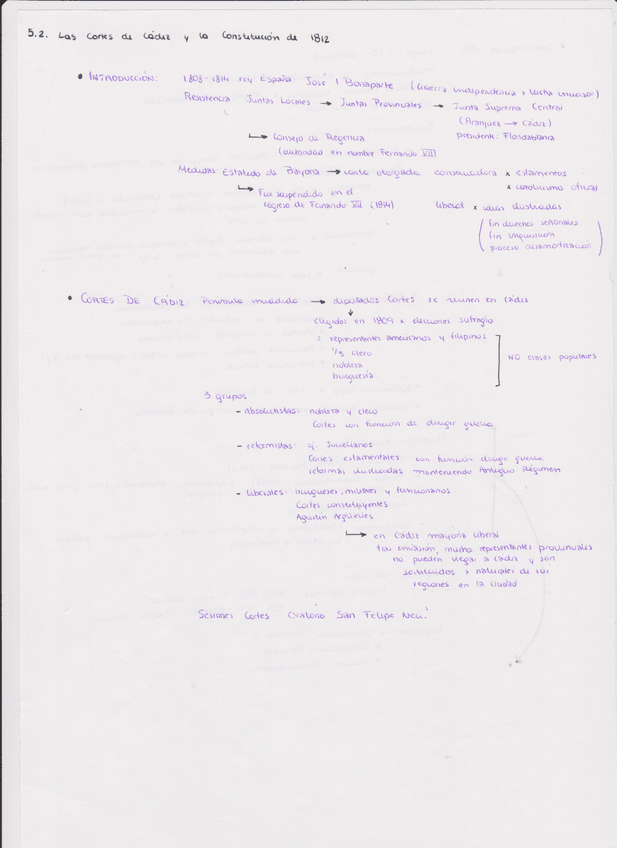 5.2. Las Cortes de Cádiz y la Constitución de 1812
• INTRODUCCIÓN: 1808-1814 rey España: José I Bonaparte (Guerra independencia, lucha invasor)
Resistencia: Juntas Locales → Juntas Provinciales → Junta Suprema Central
(Aranjuez → Cádiz)
presidente: Floridablanca
↳ Consejo de Regencia
(autoridad en nombre Fernando VII)
Medidas Estatuto de Bayona → carta otorgada conservadora x estamentos
x catolicismo oficial
↳ Fue suspendido en el
regreso de Fernando VII (1814)
liberal x ideas ilustradas
(fin derechos señoriales
fin inquisición
proceso desamortización)
• CORTES DE CÁDIZ: Península invadida → diputados Cortes se reúnen en Cádiz
↓
elegidos en 1809 x elecciones sufragio
= representantes americanos y filipinos
1/3 clero
nobleza
burguesía
NO clases populares
3 grupos
- absolutistas: nobleza y clero
Cortes con función de dirigir guerra
- reformistas: Jovellanos
Cortes estamentales con función dirigir guerra
reformas ilustradas manteniendo Antiguo Régimen
- liberales: burgueses, militares y funcionarios
Cortes constituyentes
Agustín Argüelles
↳ en Cádiz mayoría liberal
tras invasión, mucha representantes provinciales
no pueden llegar a Cádiz y son
sustituidos x naturales de sus
regiones en la ciudad
Sesiones Cortes Oratorio San Felipe Neri